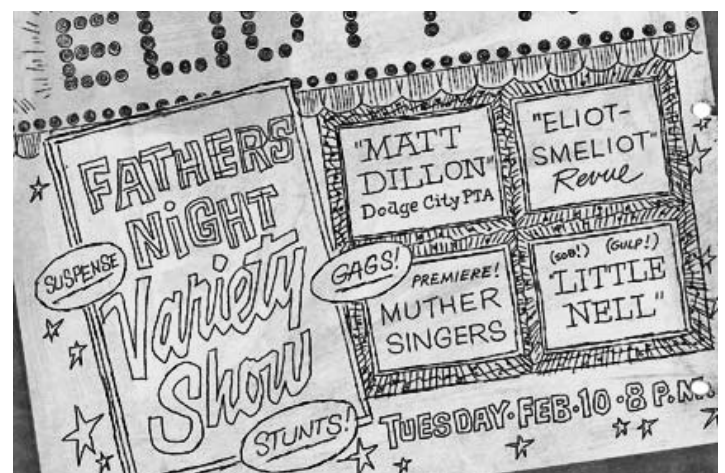 FATHERS
NIGHT
Variety
Show
SUSPENSE
GAGS!
STUNTS!
"MATT
DILLON"
Dodge City PTA
"ELIOT-
SMELIOT"
Revue
PREMIERE!
MUTHER
SINGERS
(SOB!) (GULP!)
"LITTLE
NELL"
TUESDAY·FEB·10·8 P.M.